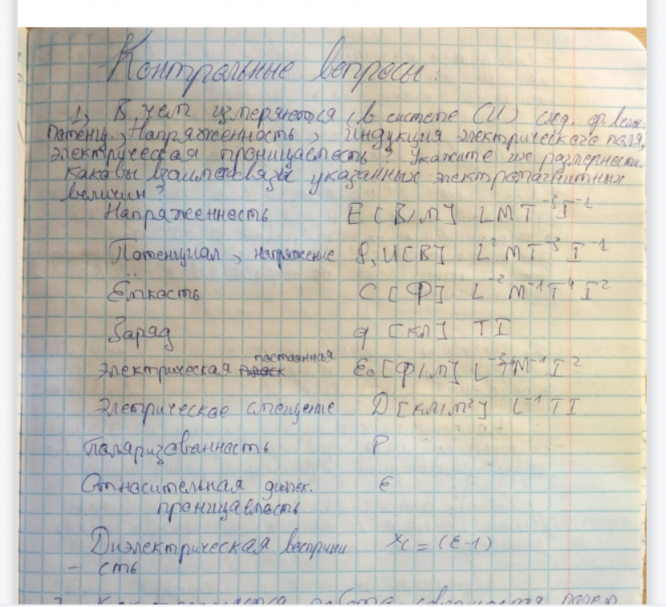 Контрольные вопросы.
1, В чем измеряются (в системе СИ) след. ф. велич.
Потенц., Напряженность, индукция электрического поля,
электрическая проницаемость? Укажите их размерности.
Каковы взаимосвязи указанных электромагнитных
величин?
Напряженность E [В/м] LMT⁻³I⁻¹
Потенциал, напряжение φ, U[В] L²MT⁻³I⁻¹
Ёмкость C [Ф] L⁻²M⁻¹T⁴I²
Заряд q [Кл] TI
Электрическая постоянная ε₀[Ф/м] L⁻³T⁴M⁻¹I²
Элетрическое смещение D [Кл/м²] L⁻¹TI
Поляризованность P
Относительная диэлек. ε
проницаемость
Диэлектрическая восприим χ = (ε-1)
- сть